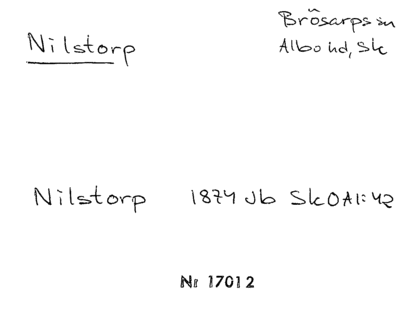 Nilstorp
Brösarps sn
Albo hd, Sk
Nilstorp 1874 Jb SkO A1:42
Nr 17012